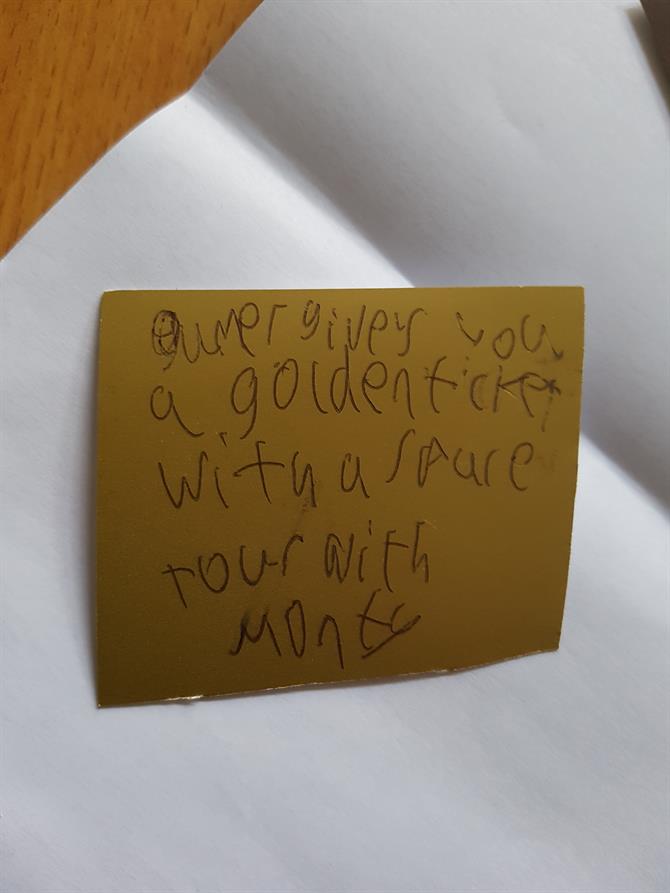 gives you
a golden ticket
with a spare
tour with
Monty